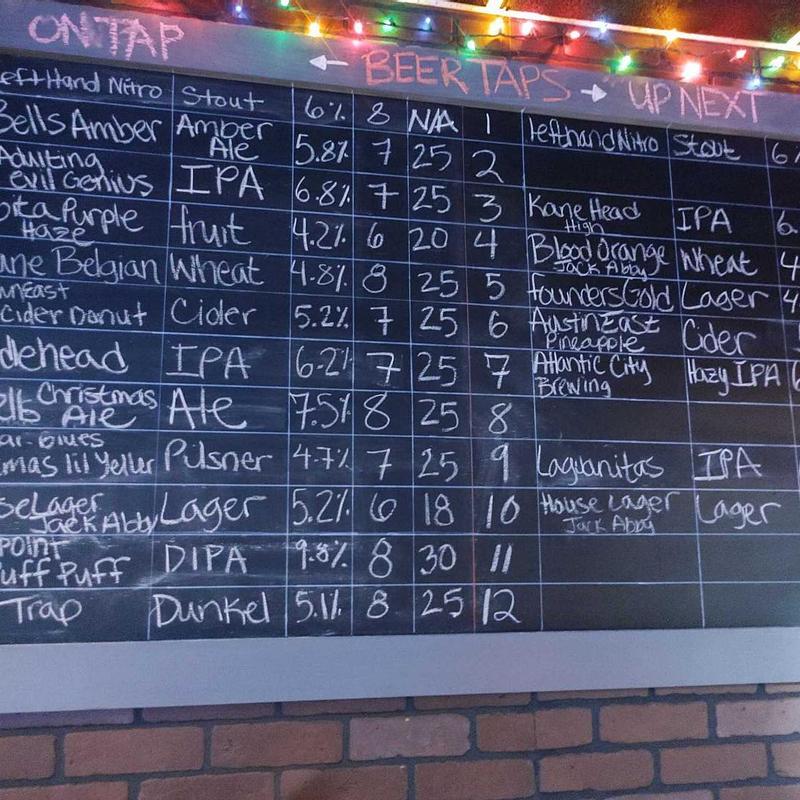 ON TAP ← BEER TAPS → UP NEXT
Left Hand Nitro Stout 6% 8 N/A 1 lefthand Nitro Stout 6%
Bells Amber Amber Ale 5.8% 7 25 2
Adulting
evil Genius IPA 6.8% 7 25 3 Kane Head
High IPA 6.
bita Purple
Haze fruit 4.2% 6 20 4 Blood Orange
Jack Abby Wheat 4
ane Belgian Wheat 4.8% 8 25 5 founders Gold Lager 4
wneast
Cider Donut Cider 5.2% 7 25 6 Austin East
Pineapple Cider
dlehead IPA 6.2% 7 25 7 Atlantic City
Brewing Hazy IPA 6
elb Christmas
Ale Ale 7.5% 8 25 8
ar-Blues
mas lil Yeller Pilsner 4.7% 7 25 9 Laguanitas IPA
se Lager
Jack Abby Lager 5.2% 6 18 10 House Lager
Jack Abby Lager
point
uff Puff DIPA 9.8% 8 30 11
Trap Dunkel 5.1% 8 25 12